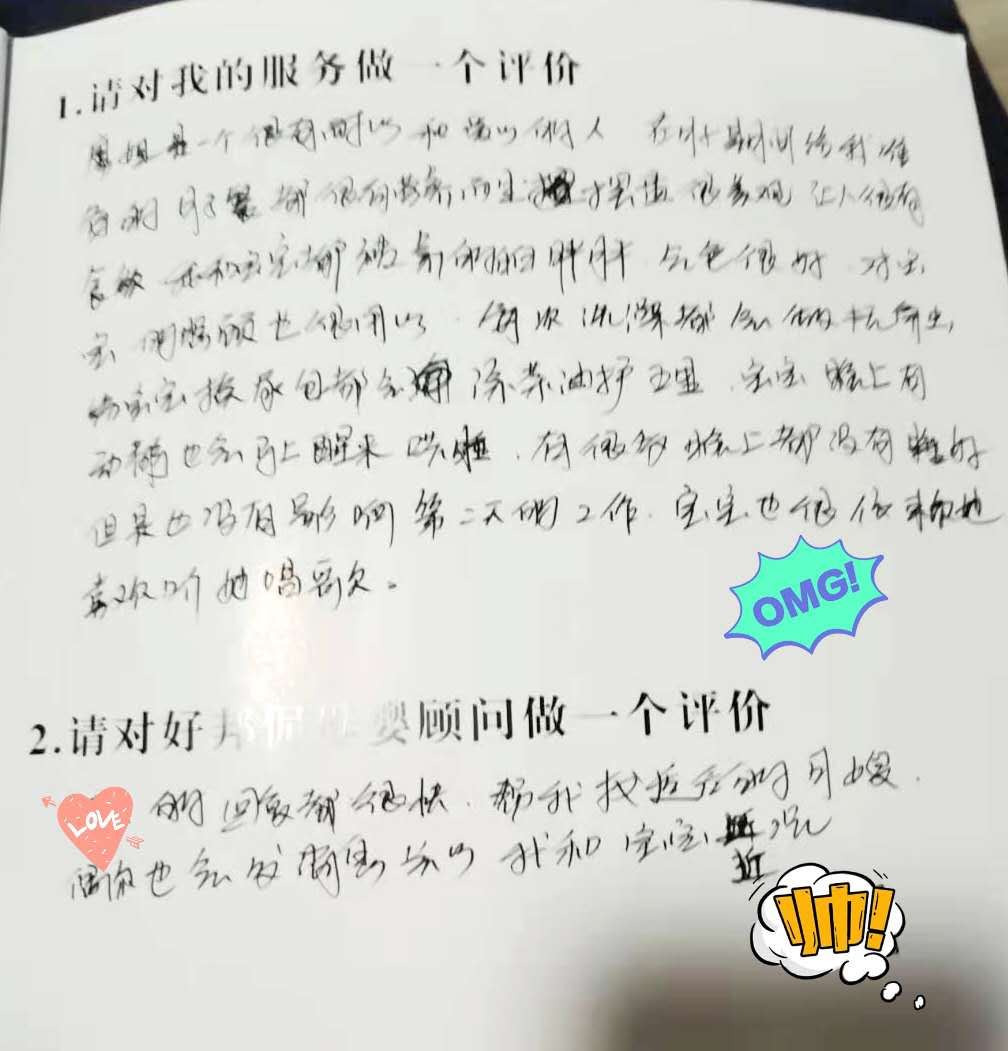 1.请对我的服务做一个评价
是一个很有耐心和细心的人 在月子期间给我准
备的月子餐都很有营养而且 很美观 让人很有
食欲 我和宝宝都被养的白白胖胖 气色很好 对宝
宝的照顾也很用心 每次洗澡都会
给宝宝换尿包都会 涂茶油护 宝宝晚上有
动静也会马上醒来哄睡 有很多晚上都没有睡好
但是也没有影响第二天的工作 宝宝也很依赖她
喜欢听她唱歌。
OMG!
2.请对好邦伲母婴顾问做一个评价
LOVE 的回复都很快 帮我找适合的月嫂
偶尔也会发消息关心我和宝宝近况
帅!